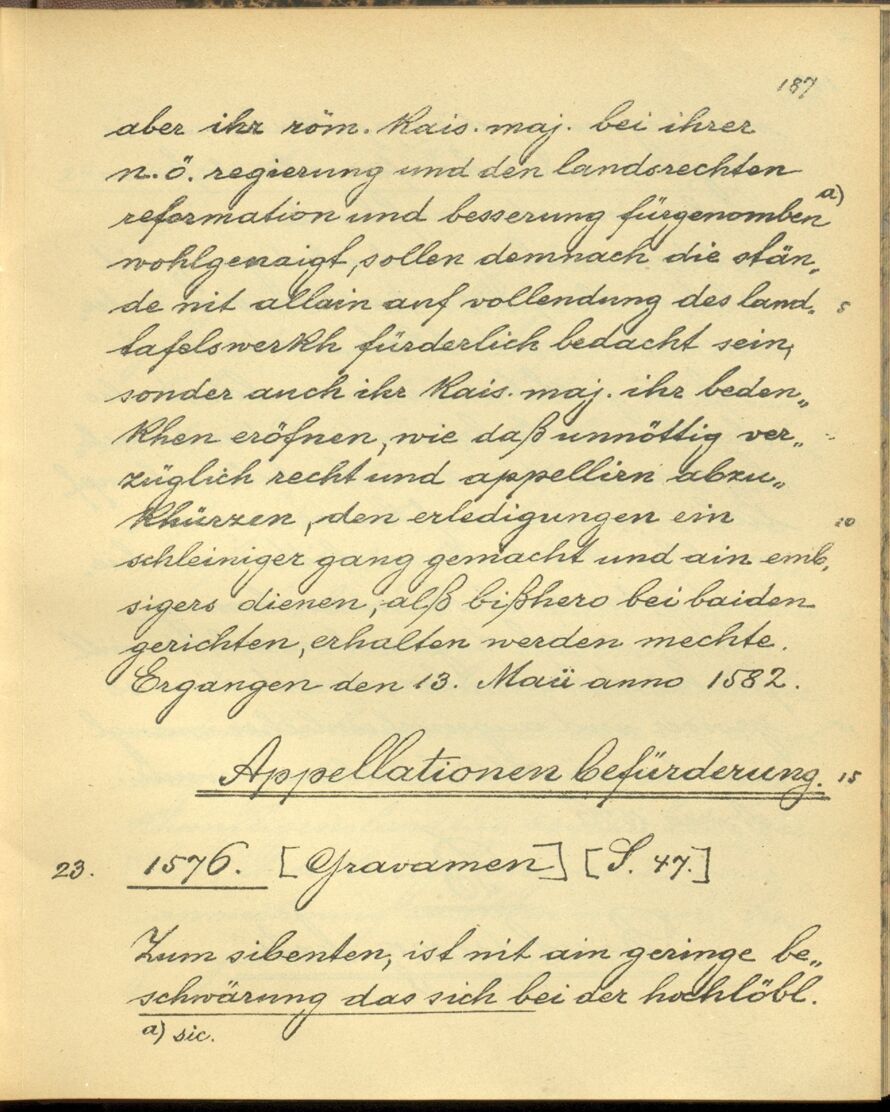 187
aber ihr röm. kais. maj. bei ihrer
n. ö. regierung und den landsrechten
reformation und besserung fürgenomben a)
wohlgenaigt, sollen demnach die stän„
de nit allain auf vollendung des land„ 5
tafelswerkh fürderlich bedacht sein,
sonder auch ihr kais. maj. ihr beden„
khen eröfnen, wie daß unnöttig ver„
züglich recht und appellirn abzu„
khürzen, den erledigungen ein 10
schleiniger gang gemacht und ain emb„
sigers dienen, alß bißhero bei baiden
gerichten, erhalten werden mechte.
Ergangen den 13. Maii anno 1582.
Appellationen befürderung. 15
23. 1576. [Gravamen] [S. 47.]
Zum sibenten, ist nit ain geringe be„
schwärung das sich bei der hochlöbl.
a) sic.